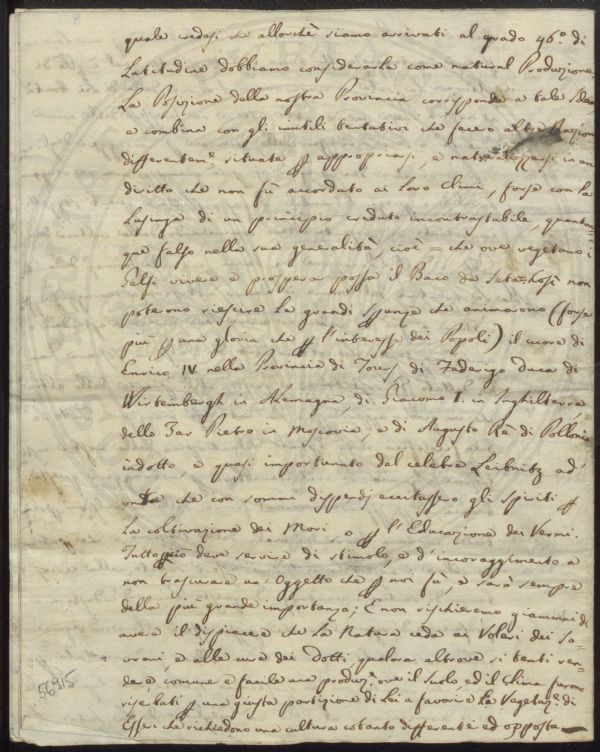 quale credesi che allorchè siamo arrivati al grado 46.° di
Latitudine dobbiamo considerarla come natural Produzione.
La Posizione della nostra Provincia corrisponde a tale Idea,
e combina con gli inutili tentativi che fecero altre Nazioni
differentem.e situate p appropriasi, e naturalizzarsi in un
diritto che non fù accordato ai loro Climi, forse con la
Lusinga di un principio creduto incontrastabile, quantun-
que falso nella sua generalità, cioè = che ove vegetano i
Gelsi vivere e prosperar possa il Baco da Seta = Così non
poterono riescire le grandi Spanze che animarono (forse
più p una gloria che p l'interesse dei Popoli) il cuore di
Enrico IV. nella Provincia di Tours, di Federigo Duca di
Wirtembergh in Alemagna, di Giacomo I. in Inghilterra,
dello Zar Pietro in Moscovia, e di Augusto Rè di Pollonia
indotto, e quasi importunato dal celebre Leibnitz ad
onta che con sommi dispendj eccitassero gli Spiriti p
la coltivazione dei Mori, o p l'Educazione dei Vermi.
Tutto ciò deve servire di stimolo, e d'incoraggimento a
non trascurare un Oggetto che p noi fù, e sarà sempre
della più grande importanza; E non rischieremo giammai di
avere il dispiacere che la Natura ceda ai Voleri dei So-
vrani, e alle cure dei Dotti, qualora altrove si tenti ren-
dere comune e facile una produz.e ove il suolo, ed il Clima furono
riserbati p una giusta partizione di Lei a favorire la Vegetaz.e di
Esseri che richiedono una cultura cotanto differente ed opposta
56915